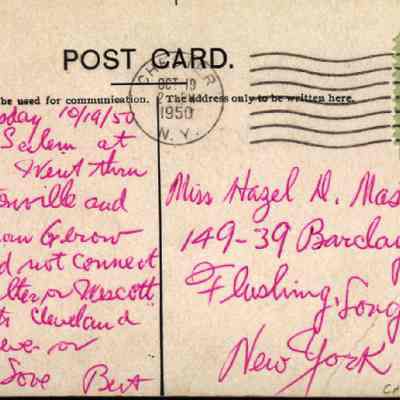 POST CARD.
be used for communication.
The address only to be written here.
OCT 19
1950
N. Y.
sday 10/19/50
Salem at
Went thru
onville and
Gerow
d not connect
or Wescott
Cleveland
or
Love Bert
Miss Hazel D. Mas
149-39 Barclay
Flushing, Long
New York